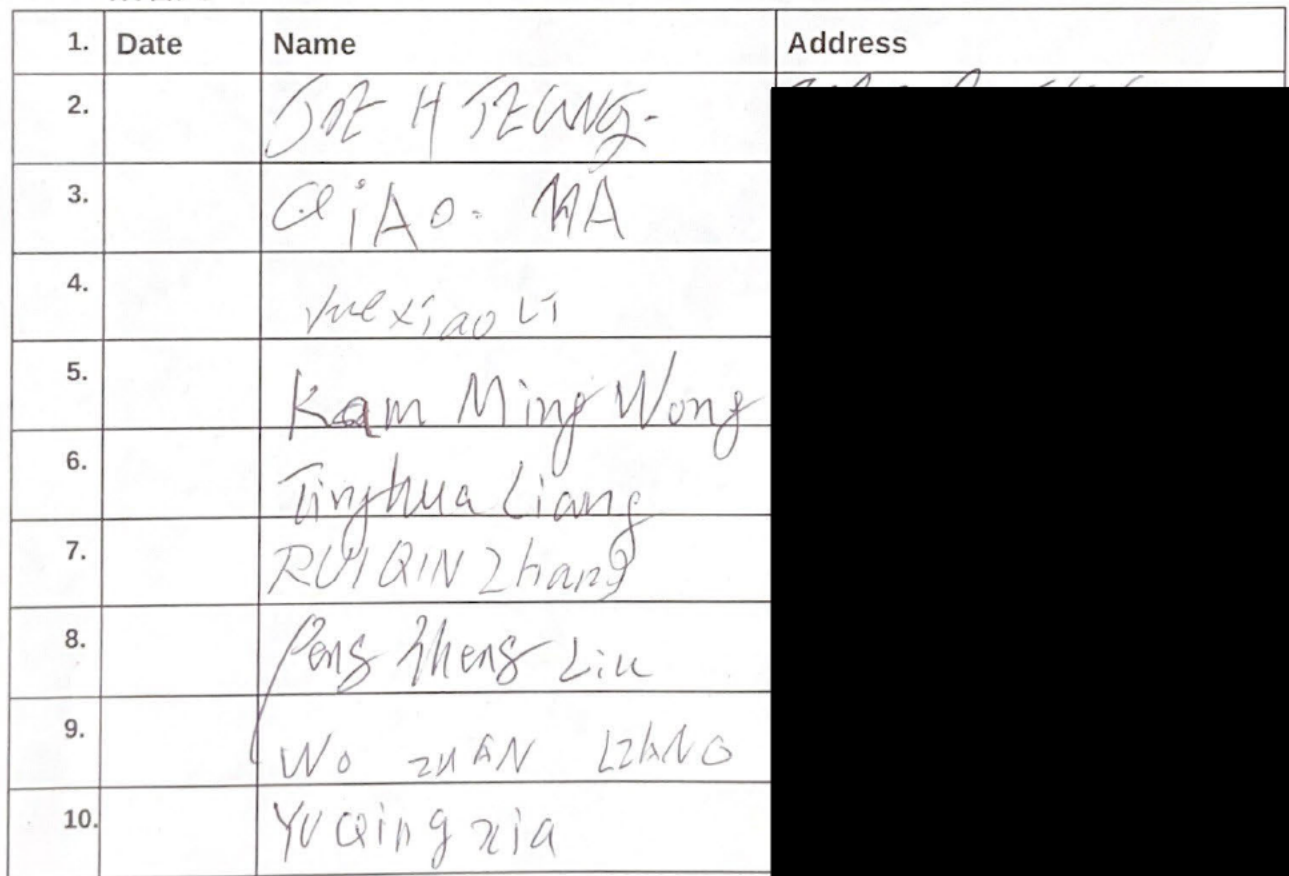 1. Date Name Address
2. JOE H TZEUNG-
3. QiAo. MA
4. Yuexiao Li
5. Kam Ming Wong
6. Tinghua Liang
7. RUIQIN Zhang
8. Peng Zheng Liu
9. Wo ZUAN
10. YU Qing xia